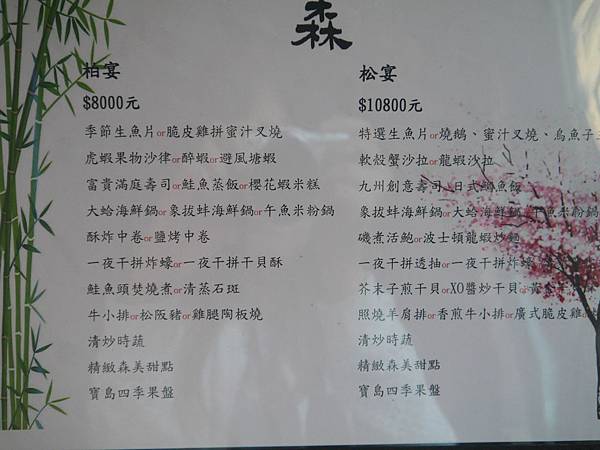 森
柏宴
$8000元
季節生魚片or脆皮雞拼蜜汁叉燒
虎蝦果物沙律or醉蝦or避風塘蝦
富貴滿庭壽司or鮭魚蒸飯or櫻花蝦米糕
大蛤海鮮鍋or象拔蚌海鮮鍋or午魚米粉鍋
酥炸中卷or鹽烤中卷
一夜干拼炸蠔or一夜干拼干貝酥
鮭魚頭焚燒煮or清蒸石斑
牛小排or松阪豬or雞腿陶板燒
清炒時蔬
精緻森美甜點
寶島四季果盤
松宴
$10800元
特選生魚片or燒鵝、蜜汁叉燒、烏魚子
軟殼蟹沙拉or龍蝦沙拉
九州創意壽司or日式鯛魚飯
象拔蚌海鮮鍋or大蛤海鮮鍋or午魚米粉鍋
磯煮活鮑or波士頓龍蝦炒麵
一夜干拼透抽or一夜干拼炸蠔
芥末子煎干貝orXO醬炒干貝or
照燒羊肩排or香煎牛小排or廣式脆皮雞or
清炒時蔬
精緻森美甜點
寶島四季果盤